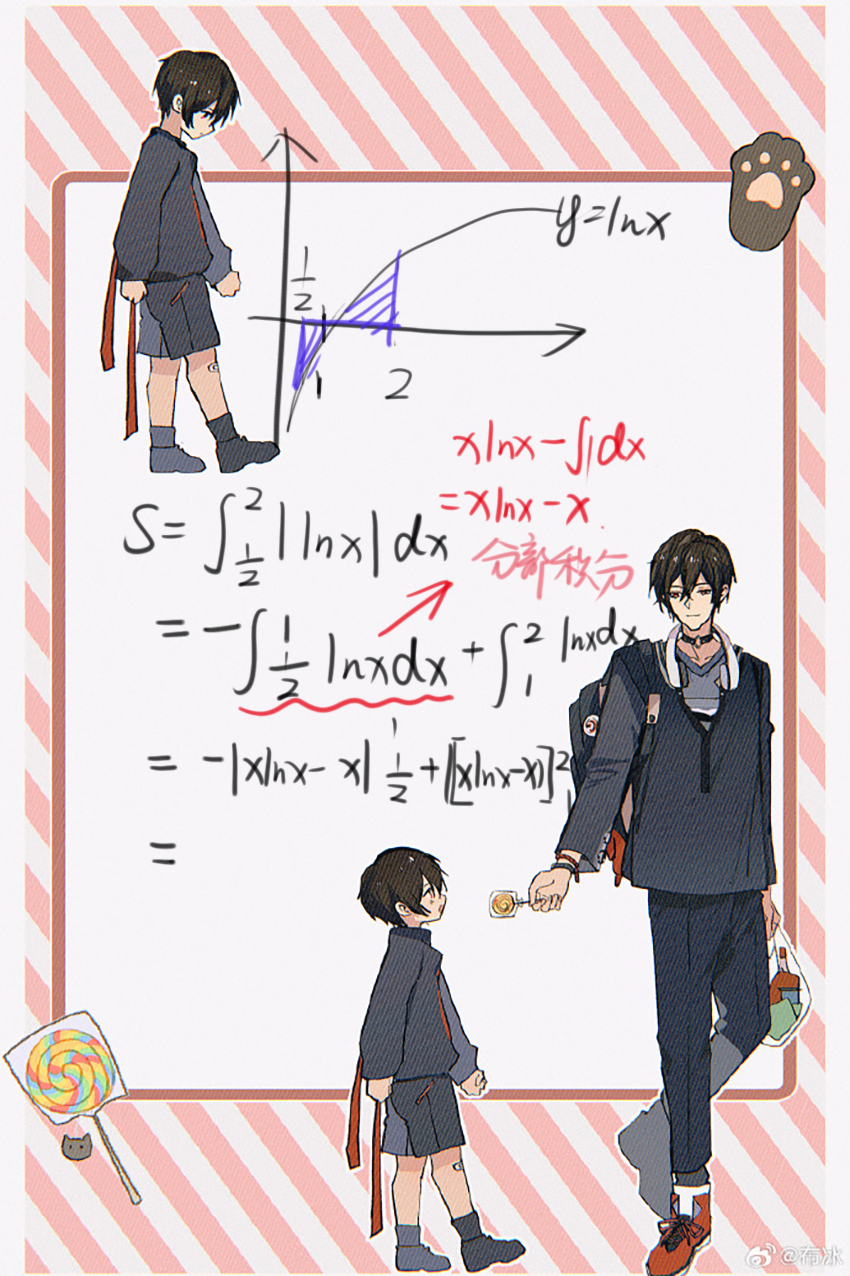 y=lnx
1/2
1
2
xlnx-∫1dx
=xlnx-x.
分部积分
S=∫_{1/2}^{2}|lnx|dx
=-∫_{1/2}^{1}lnxdx+∫_{1}^{2}lnxdx
=-|xlnx-x|_{1/2}^{1}+|[xlnx-x)]_{1}^{2}
=
@布冰